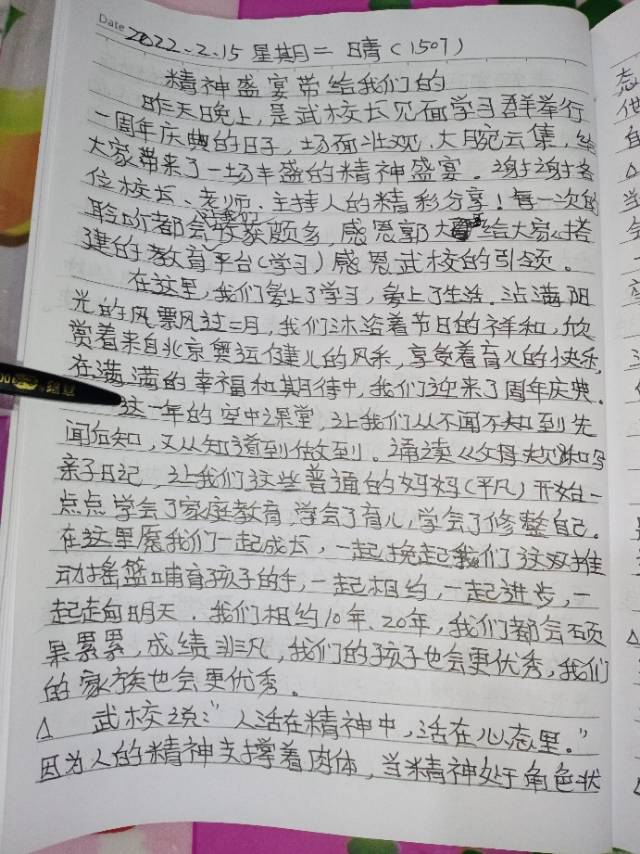 Date 2022.2.15 星期二 晴（1507）
精神盛宴带给我们的
昨天晚上，是武校长见面学习群举行
一周年庆典的日子，场面壮观、大腕云集，给
大家带来了一场丰盛的精神盛宴。谢谢各
位校长、老师、主持人的精彩分享！每一次的
聆听都会让我们收获颇多，感恩郭大 给大家搭
建的教育平台（学习）感恩武校的引领。
在这里，我们爱上了学习，爱上了生活。沾满阳
光的风飘过二月，我们沐浴着节日的祥和，欣
赏着来自北京奥运健儿的风采，享受着育儿的快乐，
在满满的幸福和期待中，我们迎来了周年庆典。
这一年的空中课堂，让我们从不闻不知到先
闻后知，又从知道到做到。诵读《父母规》和写
亲子日记，让我们这些普通的妈妈（平凡）开始一
点点学会了家庭教育，学会了育儿，学会了修整自己。
在这里愿我们一起成长，一起挽起我们这双推
动摇篮哺育孩子的手，一起相约，一起进步，一
起走向明天．我们相约10年、20年，我们都会硕
果累累，成绩非凡，我们的孩子也会更优秀，我们
的家族也会更优秀。
△ 武校说：“人活在精神中，活在心态里。”
因为人的精神支撑着肉体，当精神处于角色状